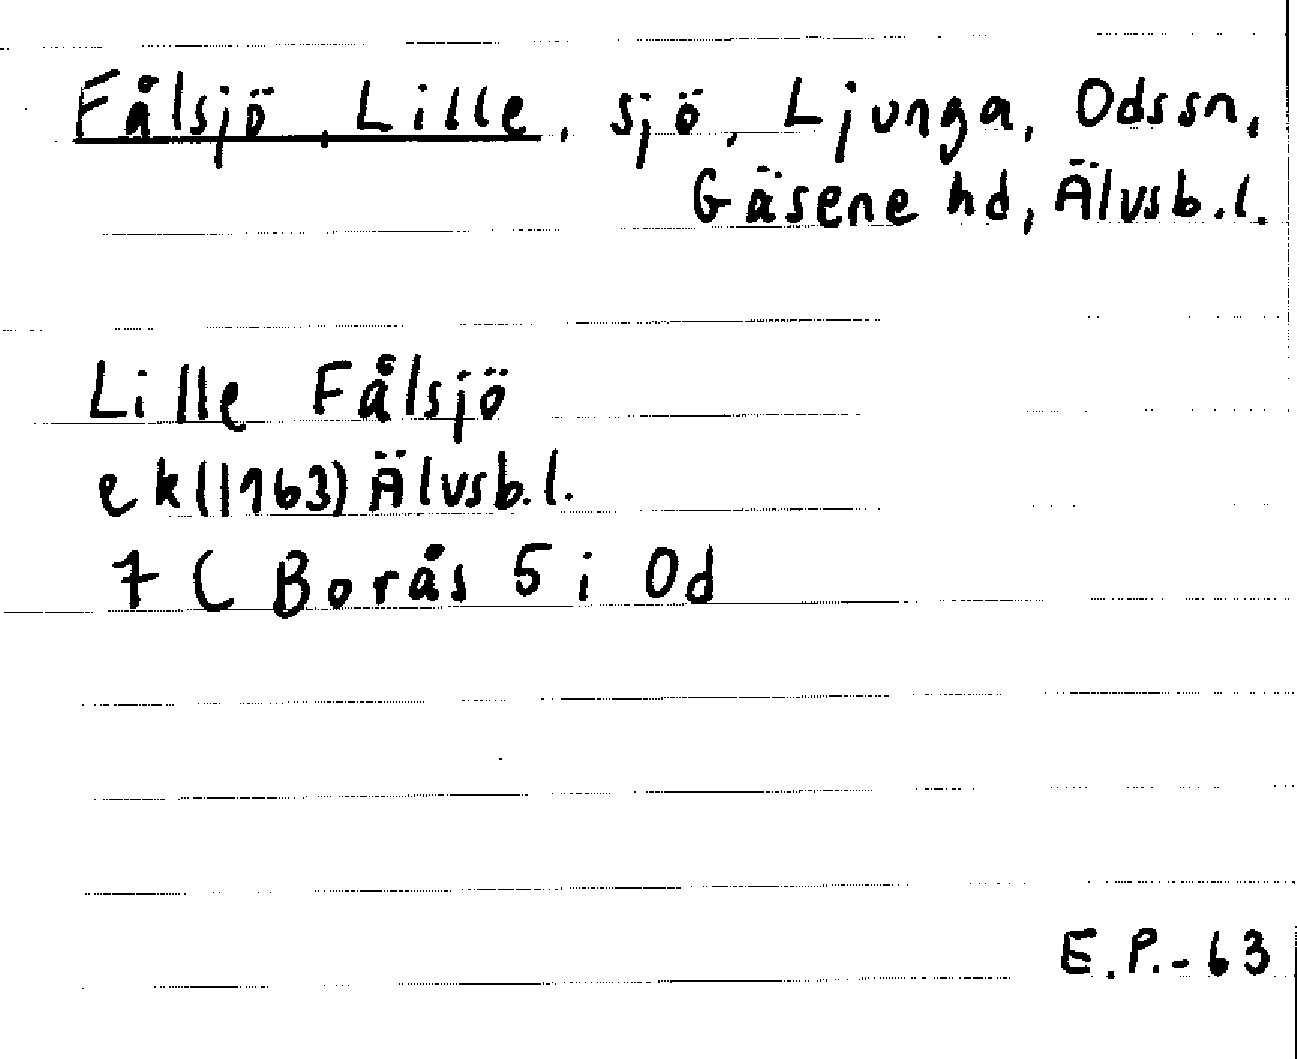 Fålsjö, Lille, sjö, Ljunga, Odssn,
Gäsene hd, Älvsb.l.
Lille Fålsjö
ek(1963) Älvsb.l.
7 C Borås 5 i Od
E.P.-63